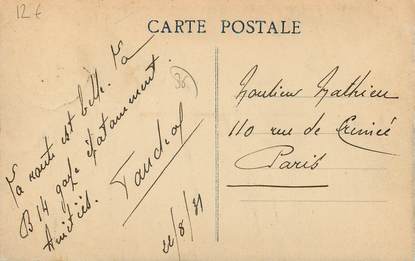 12 €
CARTE POSTALE
36
La route est belle. La
B 14 gaze épatamment.
Amitiés.
22/8/31
Monsieur Mathieu
110 rue de Crimée
Paris